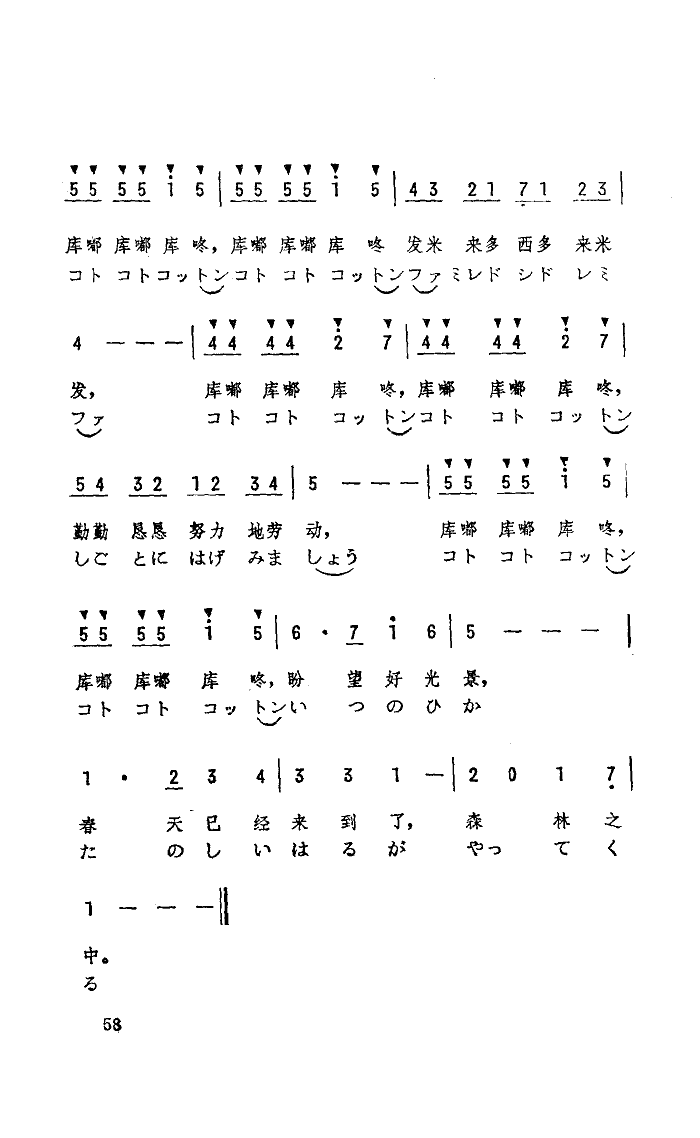 5 5 5 5 1 5 | 5 5 5 5 1 5 | 4 3 2 1 7 1 2 3 |
库嘟 库嘟 库 咚, 库嘟 库嘟 库 咚 发米 来多 西多 来米
コト コト コットン コト コト コットン ファミレド シド レミ
4 — — — | 4 4 4 4 2 7 | 4 4 4 4 2 7 |
发, 库嘟 库嘟 库 咚, 库嘟 库嘟 库 咚,
ファ コト コト コットン コト コト コットン
5 4 3 2 1 2 3 4 | 5 — — — | 5 5 5 5 1 5 |
勤勤 恳恳 努力 地劳 动, 库嘟 库嘟 库 咚,
しご とに はげ みま しょう コト コト コットン
5 5 5 5 1 5 | 6 · 7 1 6 | 5 — — — |
库嘟 库嘟 库 咚, 盼 望 好 光 景,
コト コト コットン い つ の ひ か
1 · 2 3 4 | 3 3 1 — | 2 0 1 7 |
春 天 已 经 来 到 了, 森 林 之
た の し い は る が やっ て く
1 — — — ‖
中。
る
58